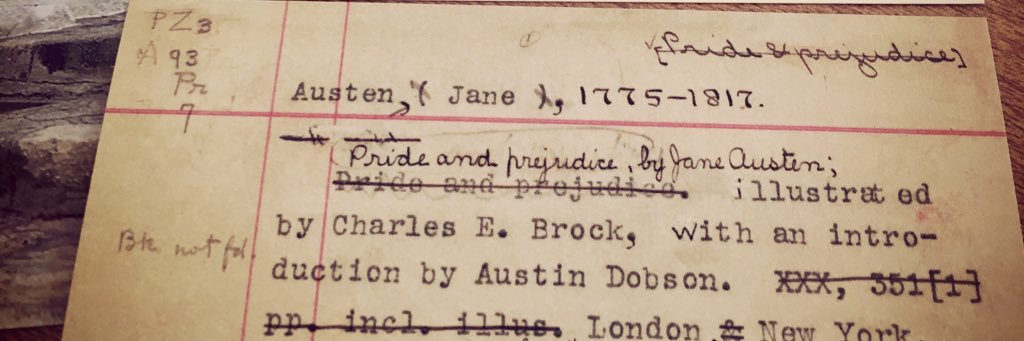 PZ3
[Pride & prejudice]
A93
Pr
7
Austen, (Jane), 1775-1817.
Pride and prejudice, by Jane Austen;
Pride and prejudice. illustrated
by Charles E. Brock, with an intro-
Bk not fd.
duction by Austin Dobson. XXX, 351[1]
pp. incl. illus. London & New York,